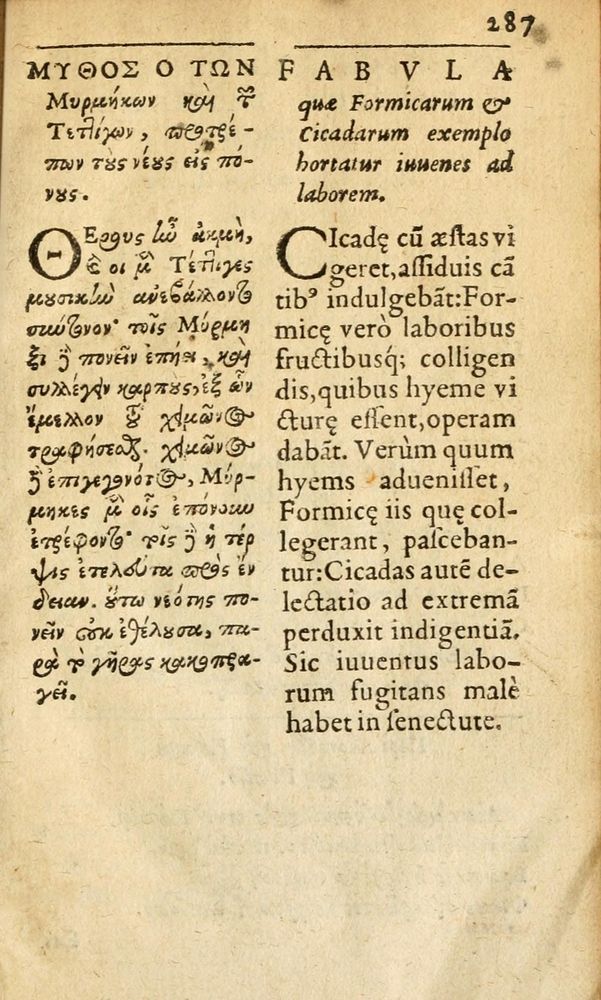 287
ΜΥΘΟΣ Ο ΤΩΝ
Μυρμήκων καὶ τῶν
Τετλίγων, προτρέ-
πων τοὺς νέους εἰς πό-
νους.
ΘΕρους ἦν ἀκμὴ,
καὶ οἱ μὲν Τέτλιγες
μουσικὴν ἀνεβάλλοντο
σύντονον· τοῖς Μύρμη
ξι δὲ πονεῖν ἐπῄει, καὶ
συλλέγειν καρποὺς, ἐξ ὧν
ἔμελλον τοῦ χειμῶνος
τραφήσεσθαι. χειμῶνος
δὲ ἐπιγεγονότος, Μύρ-
μηκες μὲν οἷς ἐπόνουν
ἐτρέφοντο· τοῖς δὲ ἡ τέρ
ψις ἐτελεύτα πρὸς ἔν
δειαν. οὕτω νεότης πο-
νεῖν οὐκ ἐθέλουσα, πα-
ρὰ τὸ γῆρας κακοπρα-
γεῖ.
FABVLA
quæ Formicarum &
Cicadarum exemplo
hortatur iuuenes ad
laborem.
CIcadę cū æſtas vi
geret, aſſiduis cā
tibꝰ indulgebāt: For-
micę verò laboribus
fructibusq́; colligen
dis, quibus hyeme vi
cturę eſſent, operam
dabāt. Verùm quum
hyems adueniſſet,
Formicę iis quę col-
legerant, paſceban-
tur: Cicadas autē de-
lectatio ad extremā
perduxit indigentiā.
Sic iuuentus labo-
rum fugitans malè
habet in ſenectute.